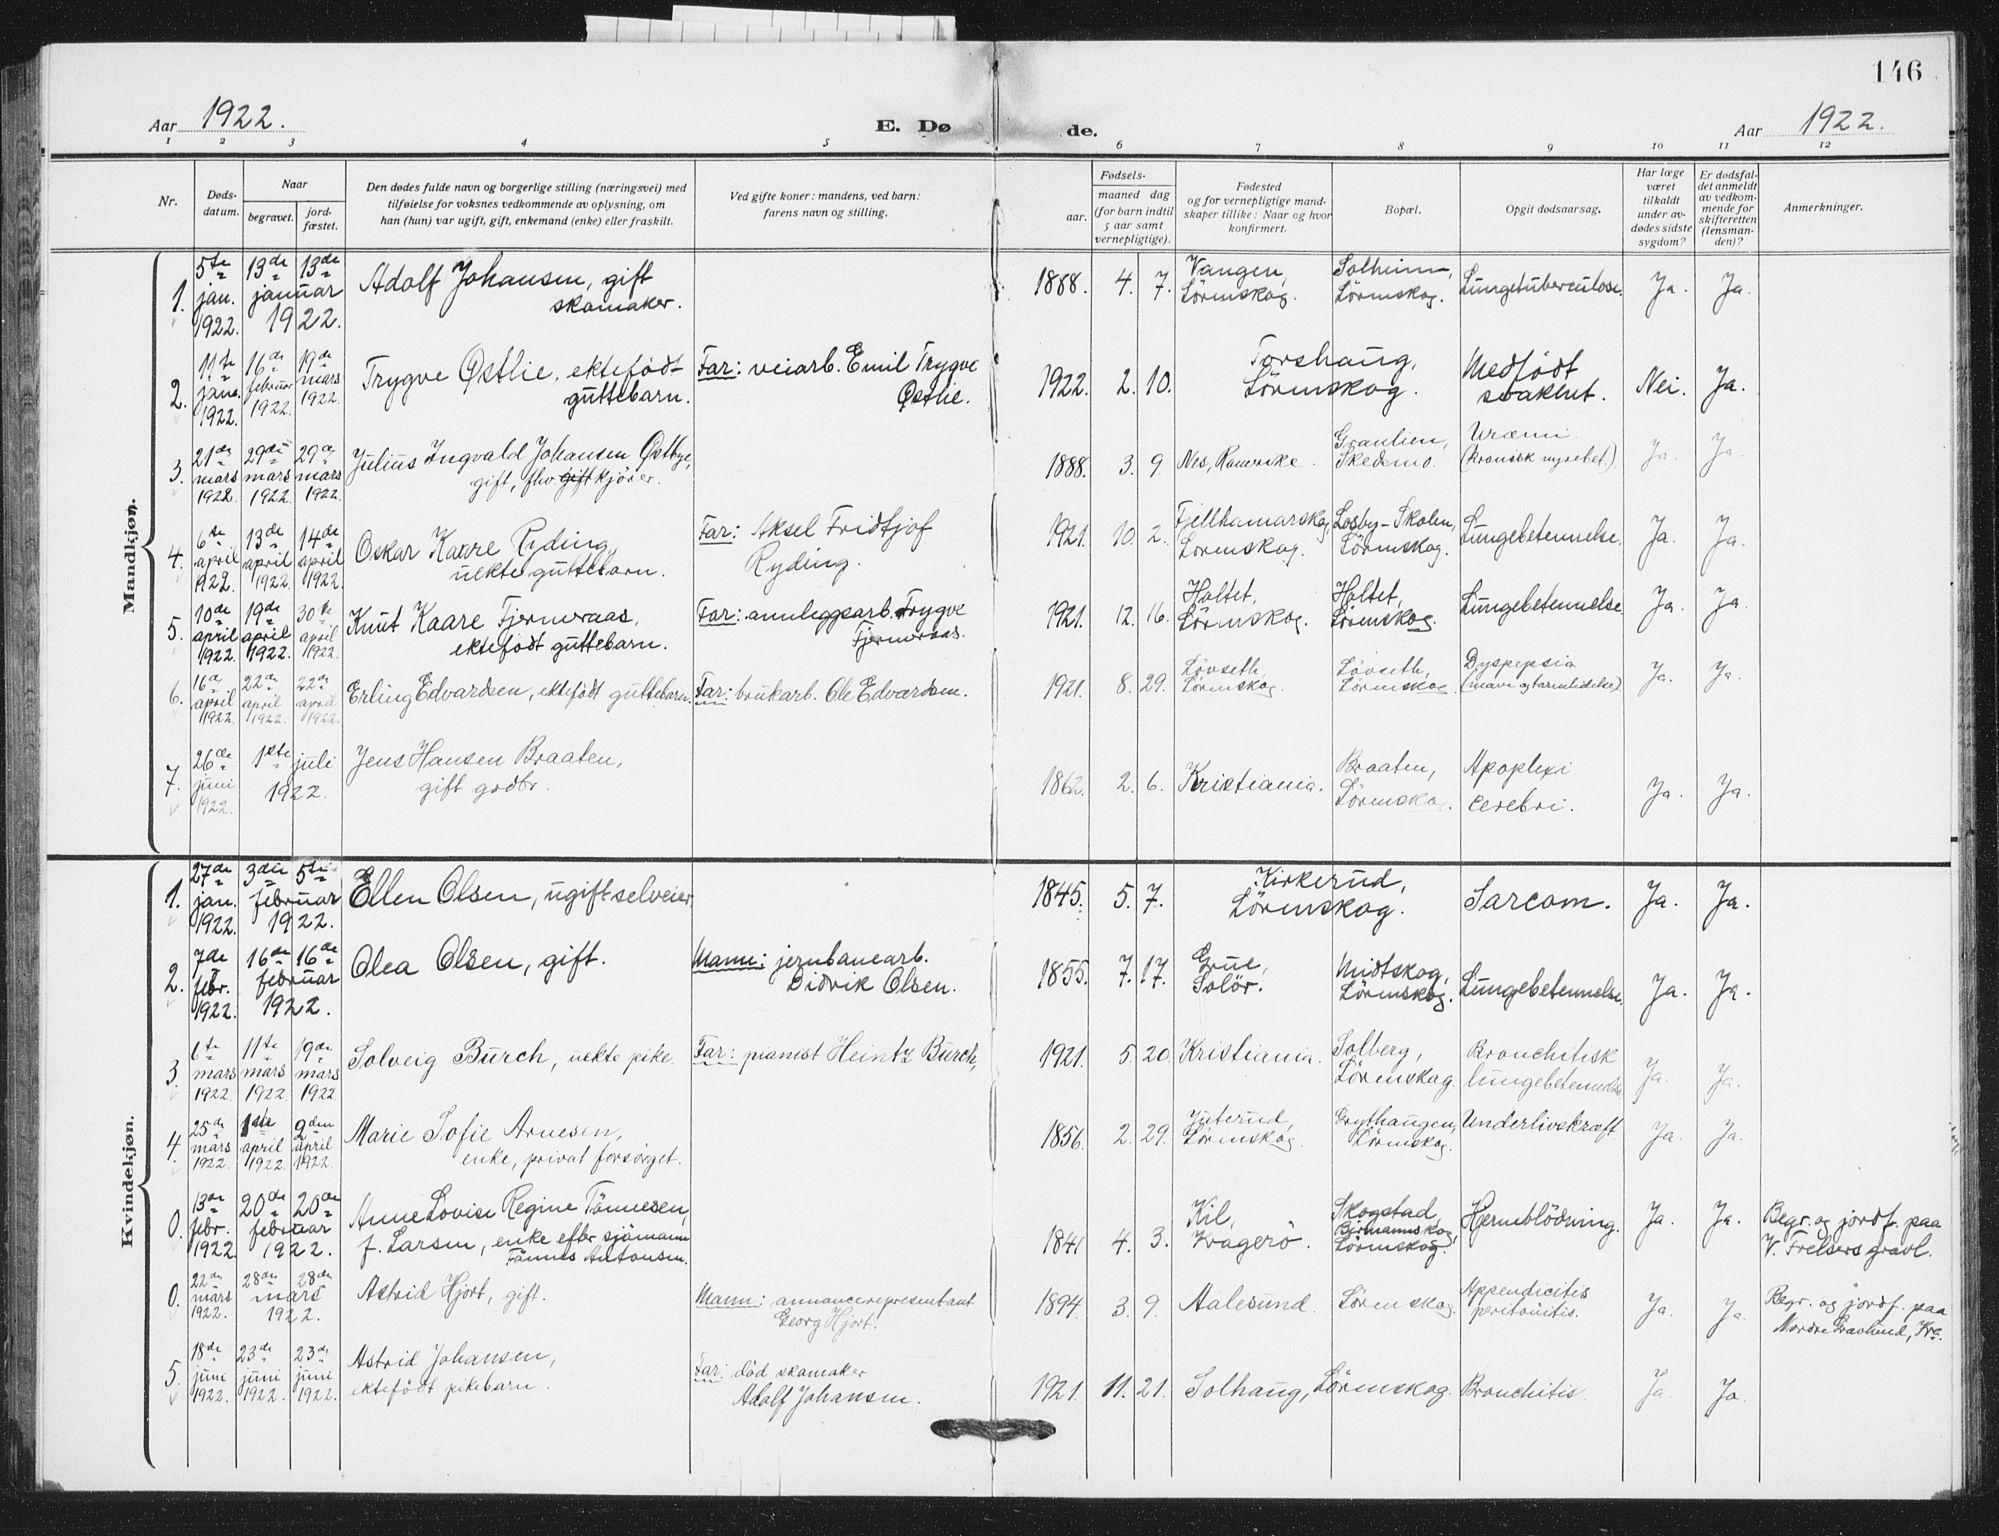 146
Aar 1922. E. Dø de. Aar 1922.
1 2 3 4 5 6 7 8 9 10 11 12
Nr.
Døds-
datum.
Naar
begravet.
jord-
fæstet.
Den dødes fulde navn og borgerlige stilling (næringsvei) med
tilføielse for voksnes vedkommende av oplysning, om
han (hun) var ugift, gift, enkemand (enke) eller fraskilt.
Ved gifte koner: mandens, ved barn:
farens navn og stilling.
Fødsels-
aar.
maaned dag
(for barn indtil
5 aar samt
vernepligtige).
Fødested
og for vernepligtige mand-
skaper tillike: Naar og hvor
konfirmert.
Bopæl.
Opgit dødsaarsag.
Har læge
været
tilkaldt
under av-
dødes sidste
sygdom?
Er dødsfal-
det anmeldt
av vedkom-
mende for
skifteretten
(lensman-
den)?
Anmerkninger.
Mandkjøn.
1. 5te jan. 1922. 13de 13de januar 1922. Adolf Johansen, gift
skomaker.
1888. 4. 7. Vangen, Lörenskog. Solheim, Lörenskog. Lungetuberculose. Ja. Ja.
2. 11te jan. 1922. 16de februar 1922. 19de mars 1922. Trygve Østlie, ektefödt
guttebarn.
Far: veiarb. Emil Trygve
Østlie.
1922. 2. 10. Torshaug, Lörenskog. Medfödt svakhet. Nei. Ja.
3. 21de mars 1922. 29de mars 1922. 29de mars 1922. Julius Ingvald Johansen Østbye,
gift, fhv. gift kjörer.
1888. 3. 9. Nes, Romerike. Granlien, Skedsmo. Uræmi (kronisk nyrebet.) Ja. Ja.
4. 6te april 1922. 13de april 1922. 14de april 1922. Oskar Kaare Ryding,
uekte guttebarn.
Far: Aksel Fridtjof
Ryding.
1921. 10. 2. Fjellhamarskog, Lörenskog. Losby-Skolen, Lörenskog. Lungebetennelse. Ja. Ja.
5. 10de april 1922. 19de april 1922. 30te april 1922. Knut Kaare Fjerneraas,
ektefödt guttebarn.
Far: annleggsarb. Trygve
Fjerneraas.
1921. 12. 16. Holtet, Lörenskog. Holtet, Lörenskog. Lungebetennelse Ja. Ja.
6. 16de april 1922. 22de april 1922. 22de april 1922. Erling Edvardsen, ektefödt guttebarn.
Far: brukarb. Ole Edvardsen.
1921. 8. 29. Lövseth, Lörenskog. Lövseth, Lörenskog. Dyspepsia (mave og tarmlidelse) Ja. Ja.
7. 26de juni 1922. 1ste juli 1922. Jens Hansen Braaten,
gift grdbr.
1862. 2. 6. Kristiania. Braaten, Lörenskog. Apoplexi cerebri. Ja. Ja.
Kvindekjøn.
1. 27de jan. 1922. 3die 5te februar 1922. Ellen Olsen, ugift selveier.
1845. 5. 7. Kirkerud, Lörenskog. Sarcom. Ja. Ja.
2. 7de febr. 1922. 16de 16de februar 1922. Olea Olsen, gift.
Mann: jernbanearb.
Didrik Olsen.
1855. 7. 17. Grue, Solör. Midtskog, Lörenskog. Lungebetennelse. Ja. Ja.
3. 6te mars 1922. 11te mars 1922 19de mars 1922 Solveig Burch, uekte pike.
Far: pianist Heintz Burch,
1921. 5. 20. Kristiania. Solberg, Lörenskog. Bronchitisk lungebetennelse Ja. Ja.
4. 25de mars 1922. 1ste april 1922. 9den april 1922. Marie Sofie Arnesen,
enke, privat forsörget.
1856. 2. 29. Lörenskog. Grythaugen, Lörenskog. Underlivskræft. Ja. Ja.
0. 13de febr. 1922 20de 20de februar 1922. Anne Lovise Regine Tönnesen,
f. Larsen, enke efter sjömann
Tönnes Antonsen.
1841 4. 3. Kil, Kragerö. Skogstad, Björnannskog, Lörenskog. Hjerneblödning. Ja. Ja. Begr. og jordf. paa
V. Frelsers gravl.
0. 22de mars 1922. 28de 28de mars 1922. Astrid Hjort, gift.
Mann: annoncerepresentant
Georg Hjort.
1894. 3. 9. Aalesund. Lörenskog. Appendicitis peritonitis. Ja. Ja. Begr. og jordf. paa
Nordre Gravlund, Kra.
5. 18de juni 1922. 23de juni 1922. 23de juni 1922. Astrid Johansen,
ektefödt pikebarn.
Far: död skomaker
Adolf Johansen.
1921. 11. 21. Solhaug, Lörenskog. Bronchitis. Ja. Ja.